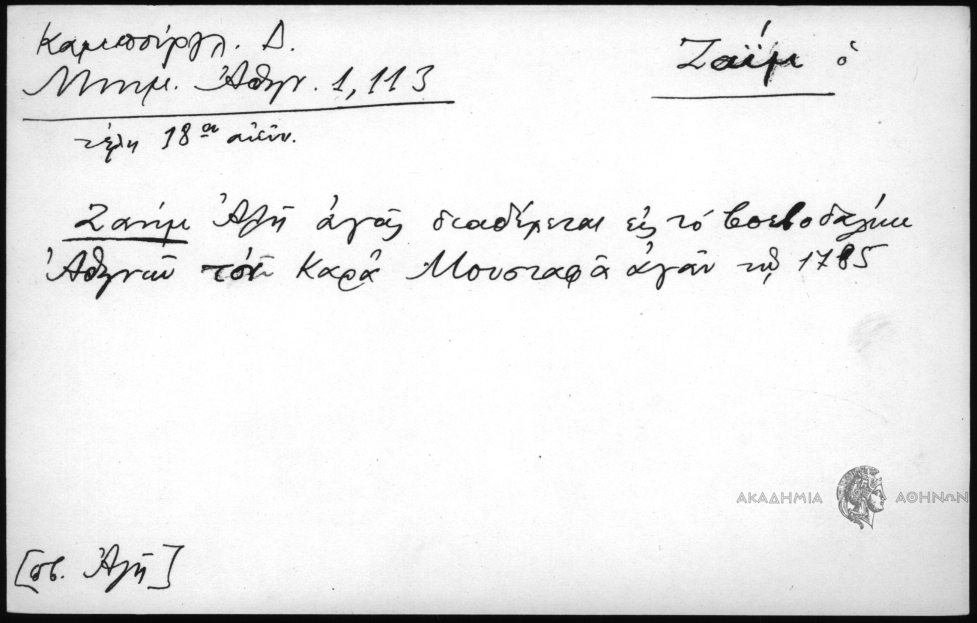 Καμπούργλ. Δ.
Μνημ. Ἀθην. 1, 113
Ζαΐμ ὁ
τέλη 18ου αἰών.
Ζαήμ Ἀλῆ ἀγᾶς διαδέχεται εἰς τό βοεβοδαλίκι
Ἀθηνῶν τόν Καρᾶ Μουσταφᾶ ἀγᾶν τῷ 1785
ΑΚΑΔΗΜΙΑ ΑΘΗΝΩΝ
[σβ. Ἀλῆ]